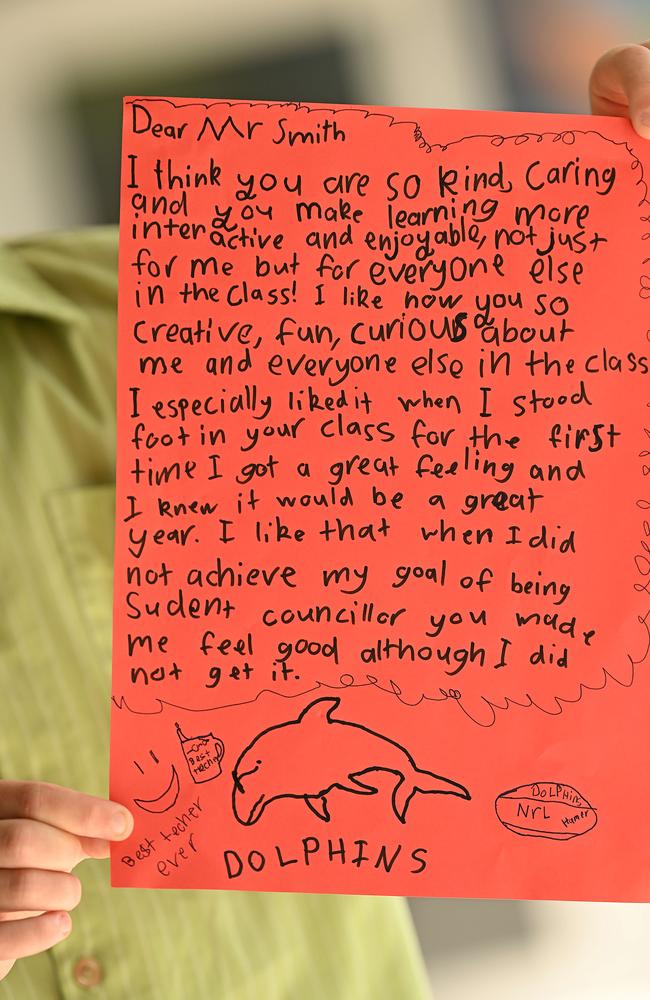 Dear Mr Smith
I think you are so kind, Caring
and you make learning more
interactive and enjoyable, not just
for me but for everyone else
in the Class! I like how you so
creative, fun, curious about
me and everyone else in the class
I especially liked it when I stood
foot in your class for the first
time I got a great feeling and
I knew it would be a great
year. I like that when I did
not achieve my goal of being
Sudent councillor you made
me feel good although I did
not get it.
Best
Best techer
ever
DOLPHINS
DOLPHINS
NRL